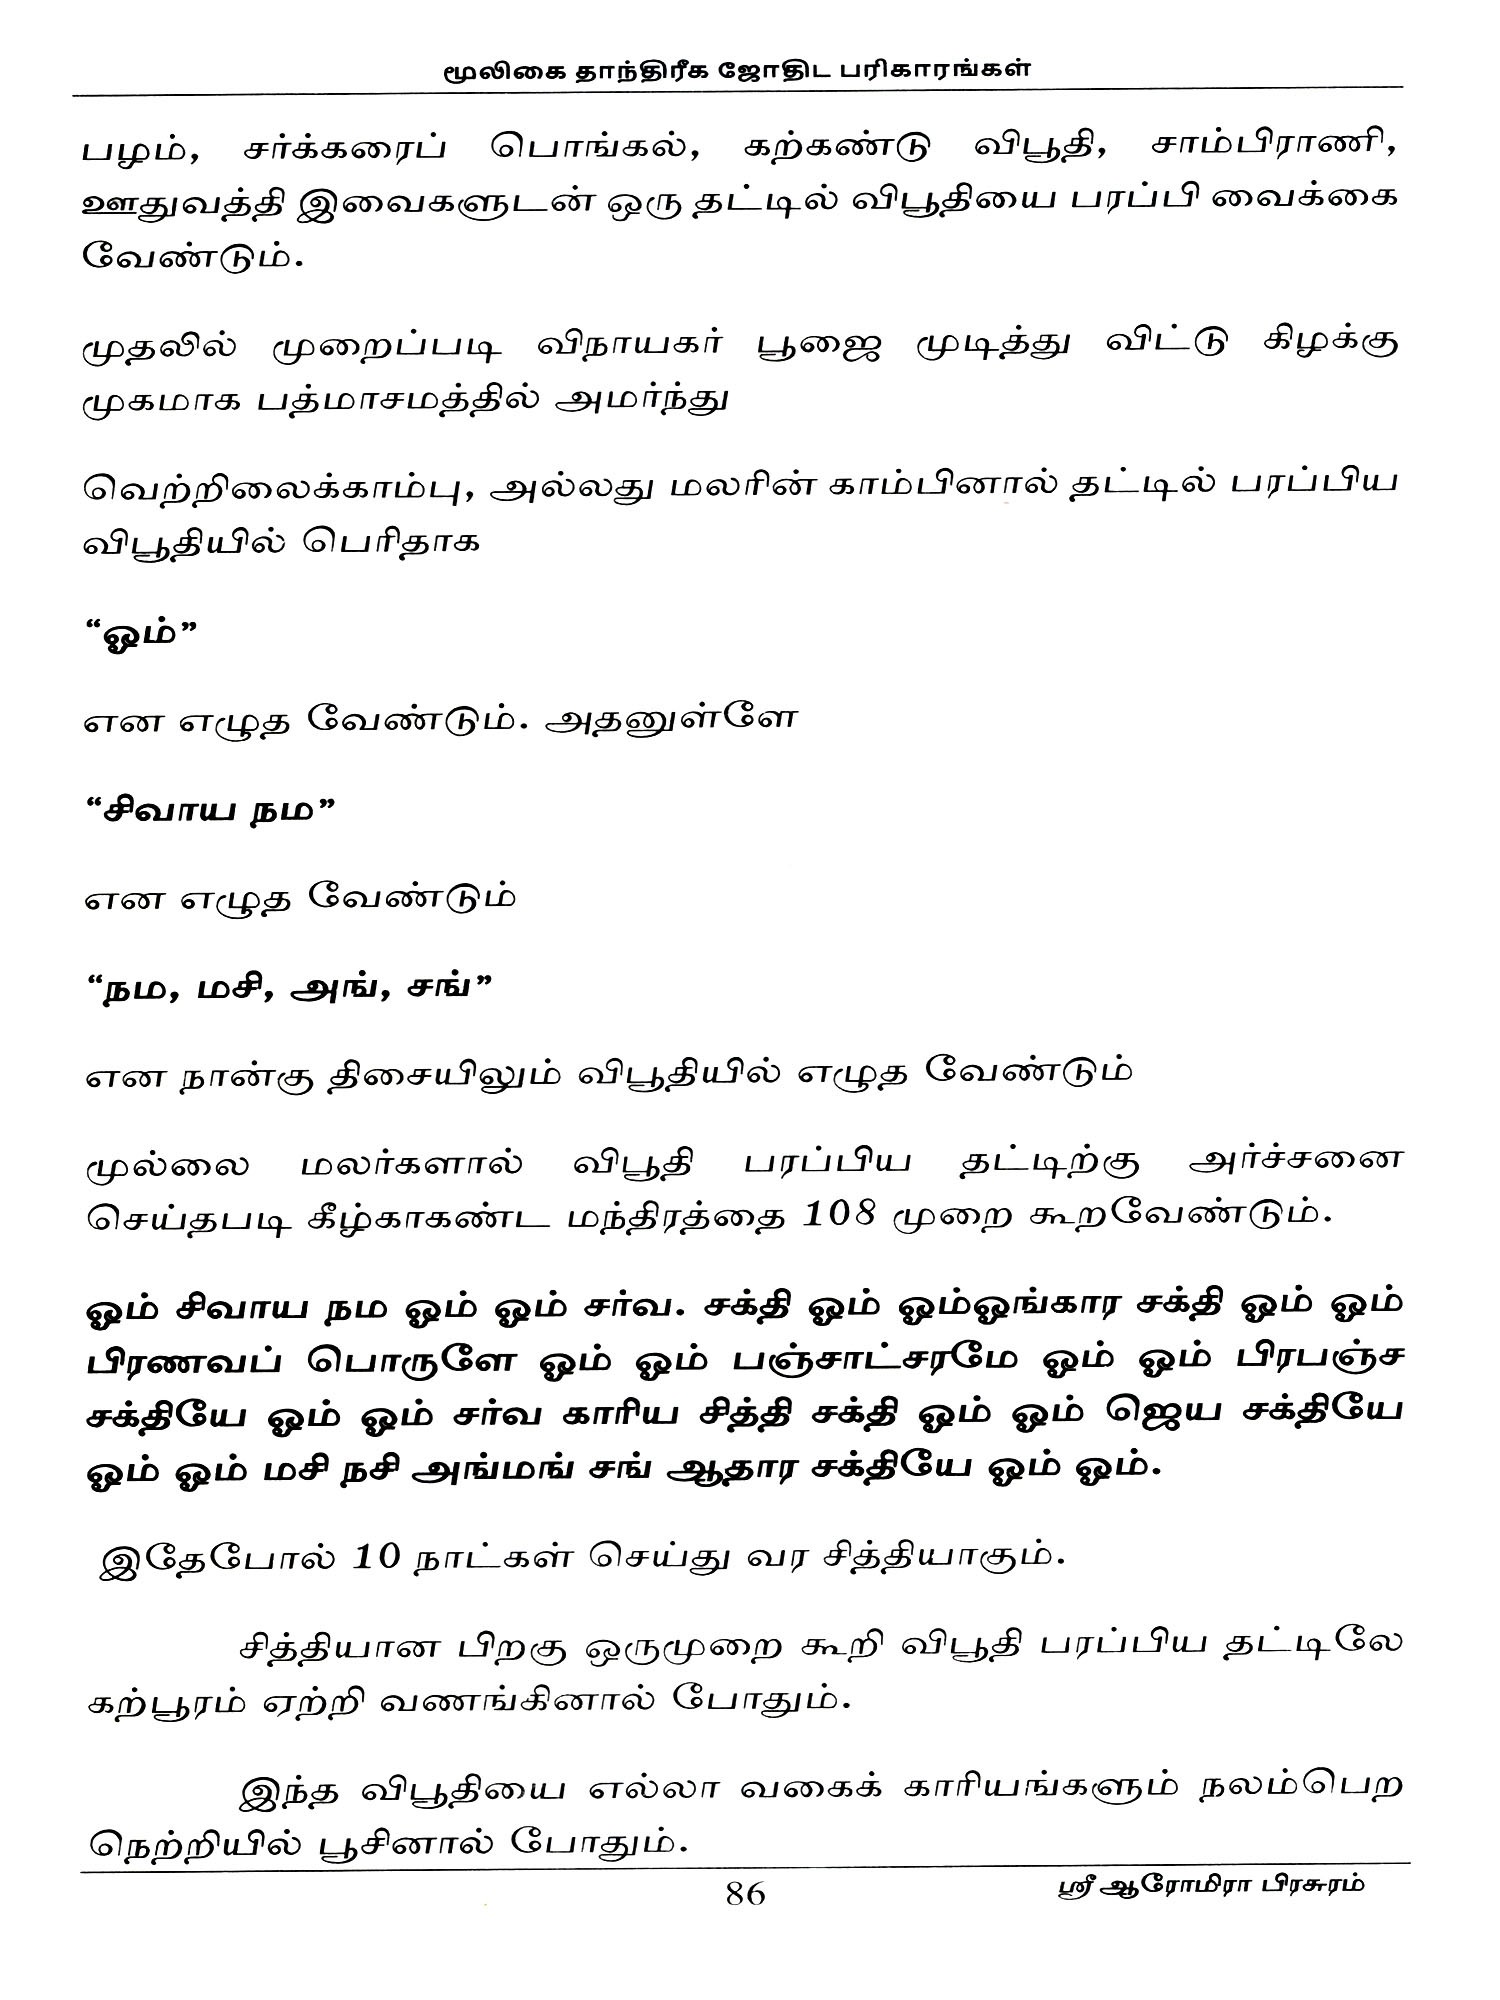 மூலிகை தாந்திரீக ஜோதிட பரிகாரங்கள்
பழம், சர்க்கரைப் பொங்கல், கற்கண்டு விபூதி, சாம்பிராணி,
ஊதுவத்தி இவைகளுடன் ஒரு தட்டில் விபூதியை பரப்பி வைக்கை
வேண்டும்.
முதலில் முறைப்படி விநாயகர் பூஜை முடித்து விட்டு கிழக்கு
முகமாக பத்மாசமத்தில் அமர்ந்து
வெற்றிலைக்காம்பு, அல்லது மலரின் காம்பினால் தட்டில் பரப்பிய
விபூதியில் பெரிதாக
“ஓம்”
என எழுத வேண்டும். அதனுள்ளே
“சிவாய நம”
என எழுத வேண்டும்
“நம, மசி, அங், சங்”
என நான்கு திசையிலும் விபூதியில் எழுத வேண்டும்
முல்லை மலர்களால் விபூதி பரப்பிய தட்டிற்கு அர்ச்சனை
செய்தபடி கீழ்காகண்ட மந்திரத்தை 108 முறை கூறவேண்டும்.
ஓம் சிவாய நம ஓம் ஓம் சர்வ. சக்தி ஓம் ஓம்ஓங்கார சக்தி ஓம் ஓம்
பிரணவப் பொருளே ஓம் ஓம் பஞ்சாட்சரமே ஓம் ஓம் பிரபஞ்ச
சக்தியே ஓம் ஓம் சர்வ காரிய சித்தி சக்தி ஓம் ஓம் ஜெய சக்தியே
ஓம் ஓம் மசி நசி அங்மங் சங் ஆதார சக்தியே ஓம் ஓம்.
இதேபோல் 10 நாட்கள் செய்து வர சித்தியாகும்.
சித்தியான பிறகு ஒருமுறை கூறி விபூதி பரப்பிய தட்டிலே
கற்பூரம் ஏற்றி வணங்கினால் போதும்.
இந்த விபூதியை எல்லா வகைக் காரியங்களும் நலம்பெற
நெற்றியில் பூசினால் போதும்.
86
ஸ்ரீ ஆரோமிரா பிரசுரம்